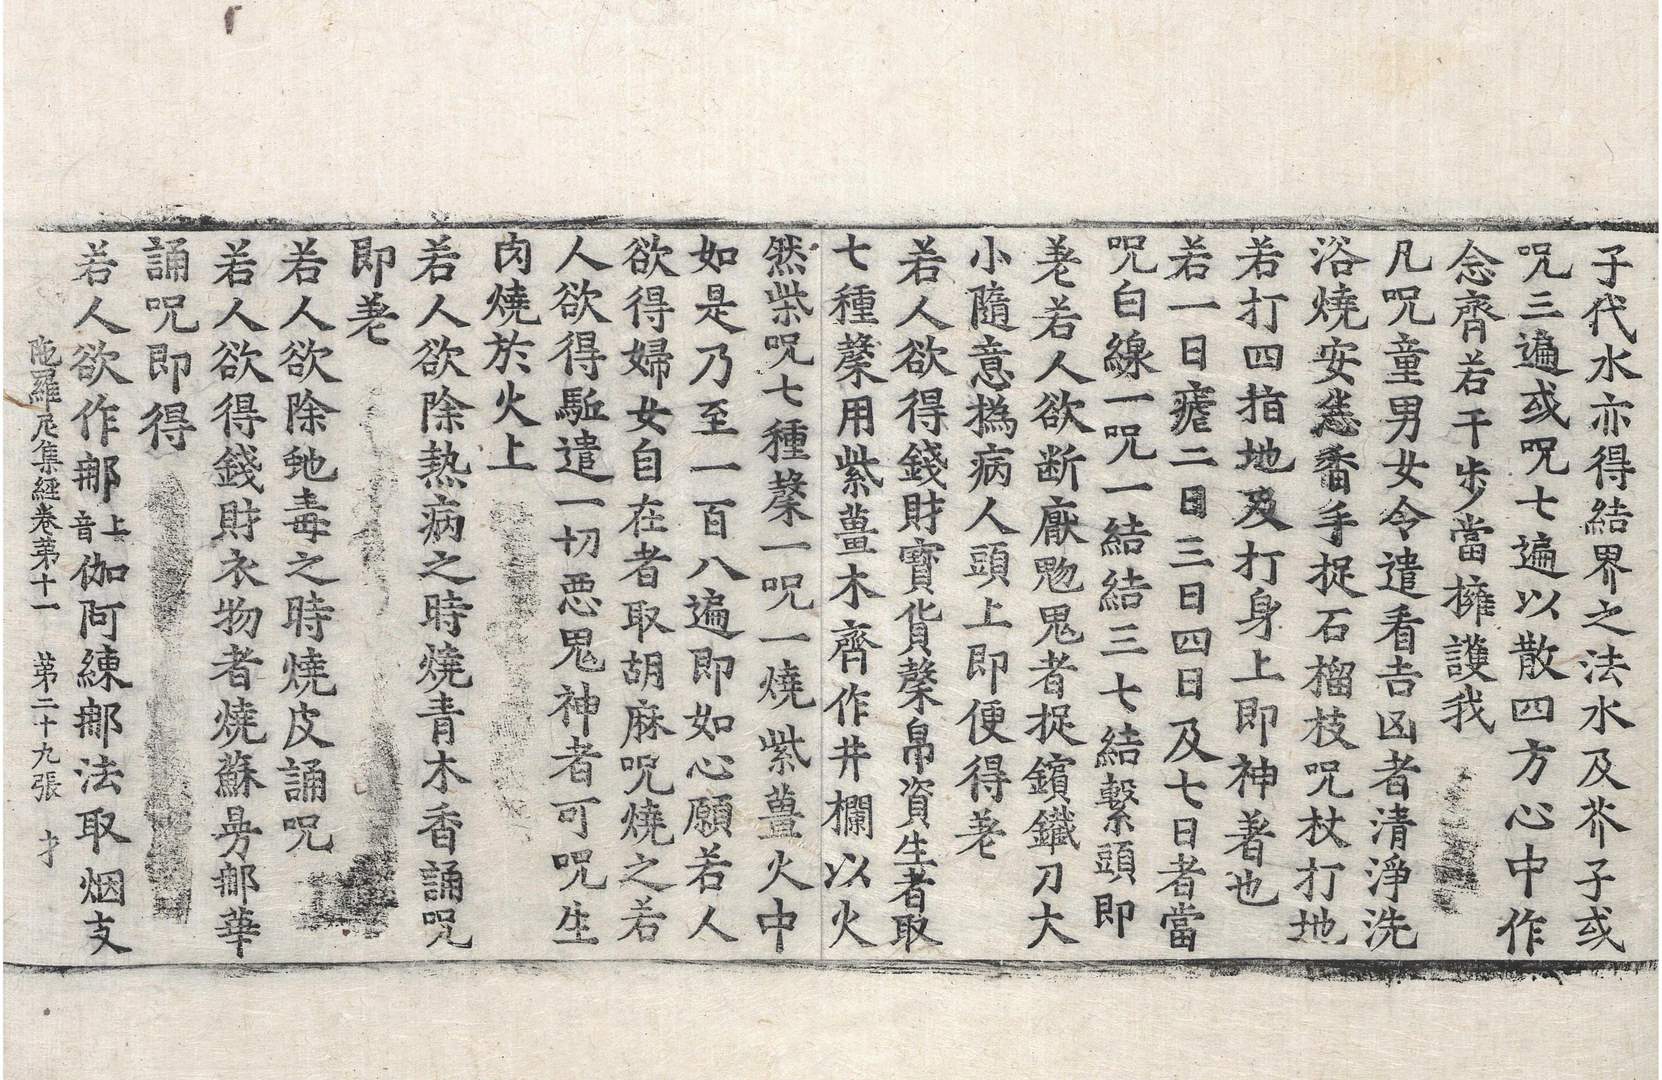 子代水亦得結界之法水及芥子或
呪三遍或呪七遍以散四方心中作
念齊若干步當擁護我
凡呪童男女令遣看吉凶者清淨洗
浴燒安悉香手捉石榴枝呪杖打地
若打四指地及打身上即神著也
若一日瘧二日三日四日及七日者當
呪白線一呪一結結三七結繫頭即
差若人欲断厭魅鬼者捉鑌鐵刀大
小隨意撝病人頭上即便得差
若人欲得錢財寶貨㲈帛資生者取
七種㲈用紫薑木齊作井欄以火
然柴呪七種㲈一呪一燒紫薑火中
如是乃至一百八遍即如心願若人
欲得婦女自在者取胡麻呪燒之若
人欲得駈遣一切惡鬼神者可呪生
肉燒於火上
若人欲除熱病之時燒青木香誦呪
即差
若人欲除虵毒之時燒皮誦呪
若人欲得錢財衣物者燒蘇曼那華
誦呪即得
若人欲作那上音伽阿練那法取烟支
陁羅尼集經卷第十一 第二十九張 才